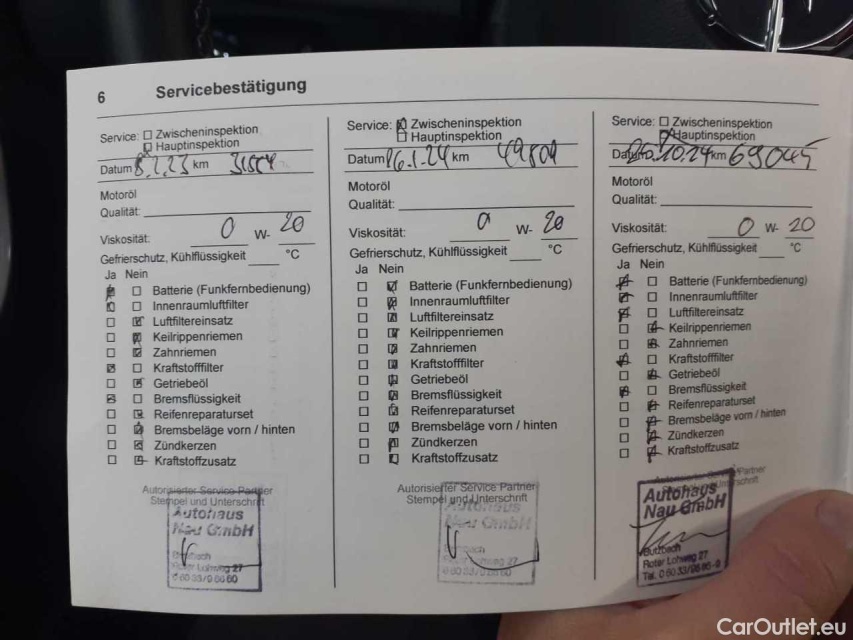 6 Servicebestätigung
Service: Zwischeninspektion
Hauptinspektion
Datum 8.2.23 km
Motoröl
Qualität:
Viskosität: 0 W- 20
Gefrierschutz, Kühlflüssigkeit °C
Ja Nein
Batterie (Funkfernbedienung)
Innenraumluftfilter
Luftfiltereinsatz
Keilrippenriemen
Zahnriemen
Kraftstofffilter
Getriebeöl
Bremsflüssigkeit
Reifenreparaturset
Bremsbeläge vorn / hinten
Zündkerzen
Kraftstoffzusatz
Autorisierter Service Partner
Stempel und Unterschrift
Autohaus
Nau GmbH
Butzbach
Roter Lohweg 27
Service: Zwischeninspektion
Hauptinspektion
Datum 16.1.24 km 49801
Motoröl
Qualität:
Viskosität: 0 W- 20
Gefrierschutz, Kühlflüssigkeit °C
Ja Nein
Batterie (Funkfernbedienung)
Innenraumluftfilter
Luftfiltereinsatz
Keilrippenriemen
Zahnriemen
Kraftstofffilter
Getriebeöl
Bremsflüssigkeit
Reifenreparaturset
Bremsbeläge vorn / hinten
Zündkerzen
Kraftstoffzusatz
Autorisierter Service Partner
Stempel und Unterschrift
Autohaus
Nau GmbH
Butzbach
Roter Lohweg 27
Service: Zwischeninspektion
Hauptinspektion
Datum 25.10.24 km 69045
Motoröl
Qualität:
Viskosität: 0 W- 20
Gefrierschutz, Kühlflüssigkeit °C
Ja Nein
Batterie (Funkfernbedienung)
Innenraumluftfilter
Luftfiltereinsatz
Keilrippenriemen
Zahnriemen
Kraftstofffilter
Getriebeöl
Bremsflüssigkeit
Reifenreparaturset
Bremsbeläge vorn / hinten
Zündkerzen
Kraftstoffzusatz
Autorisierter Service Partner
Autohaus
Nau GmbH
Butzbach
Roter Lohweg 27
CarOutlet.eu